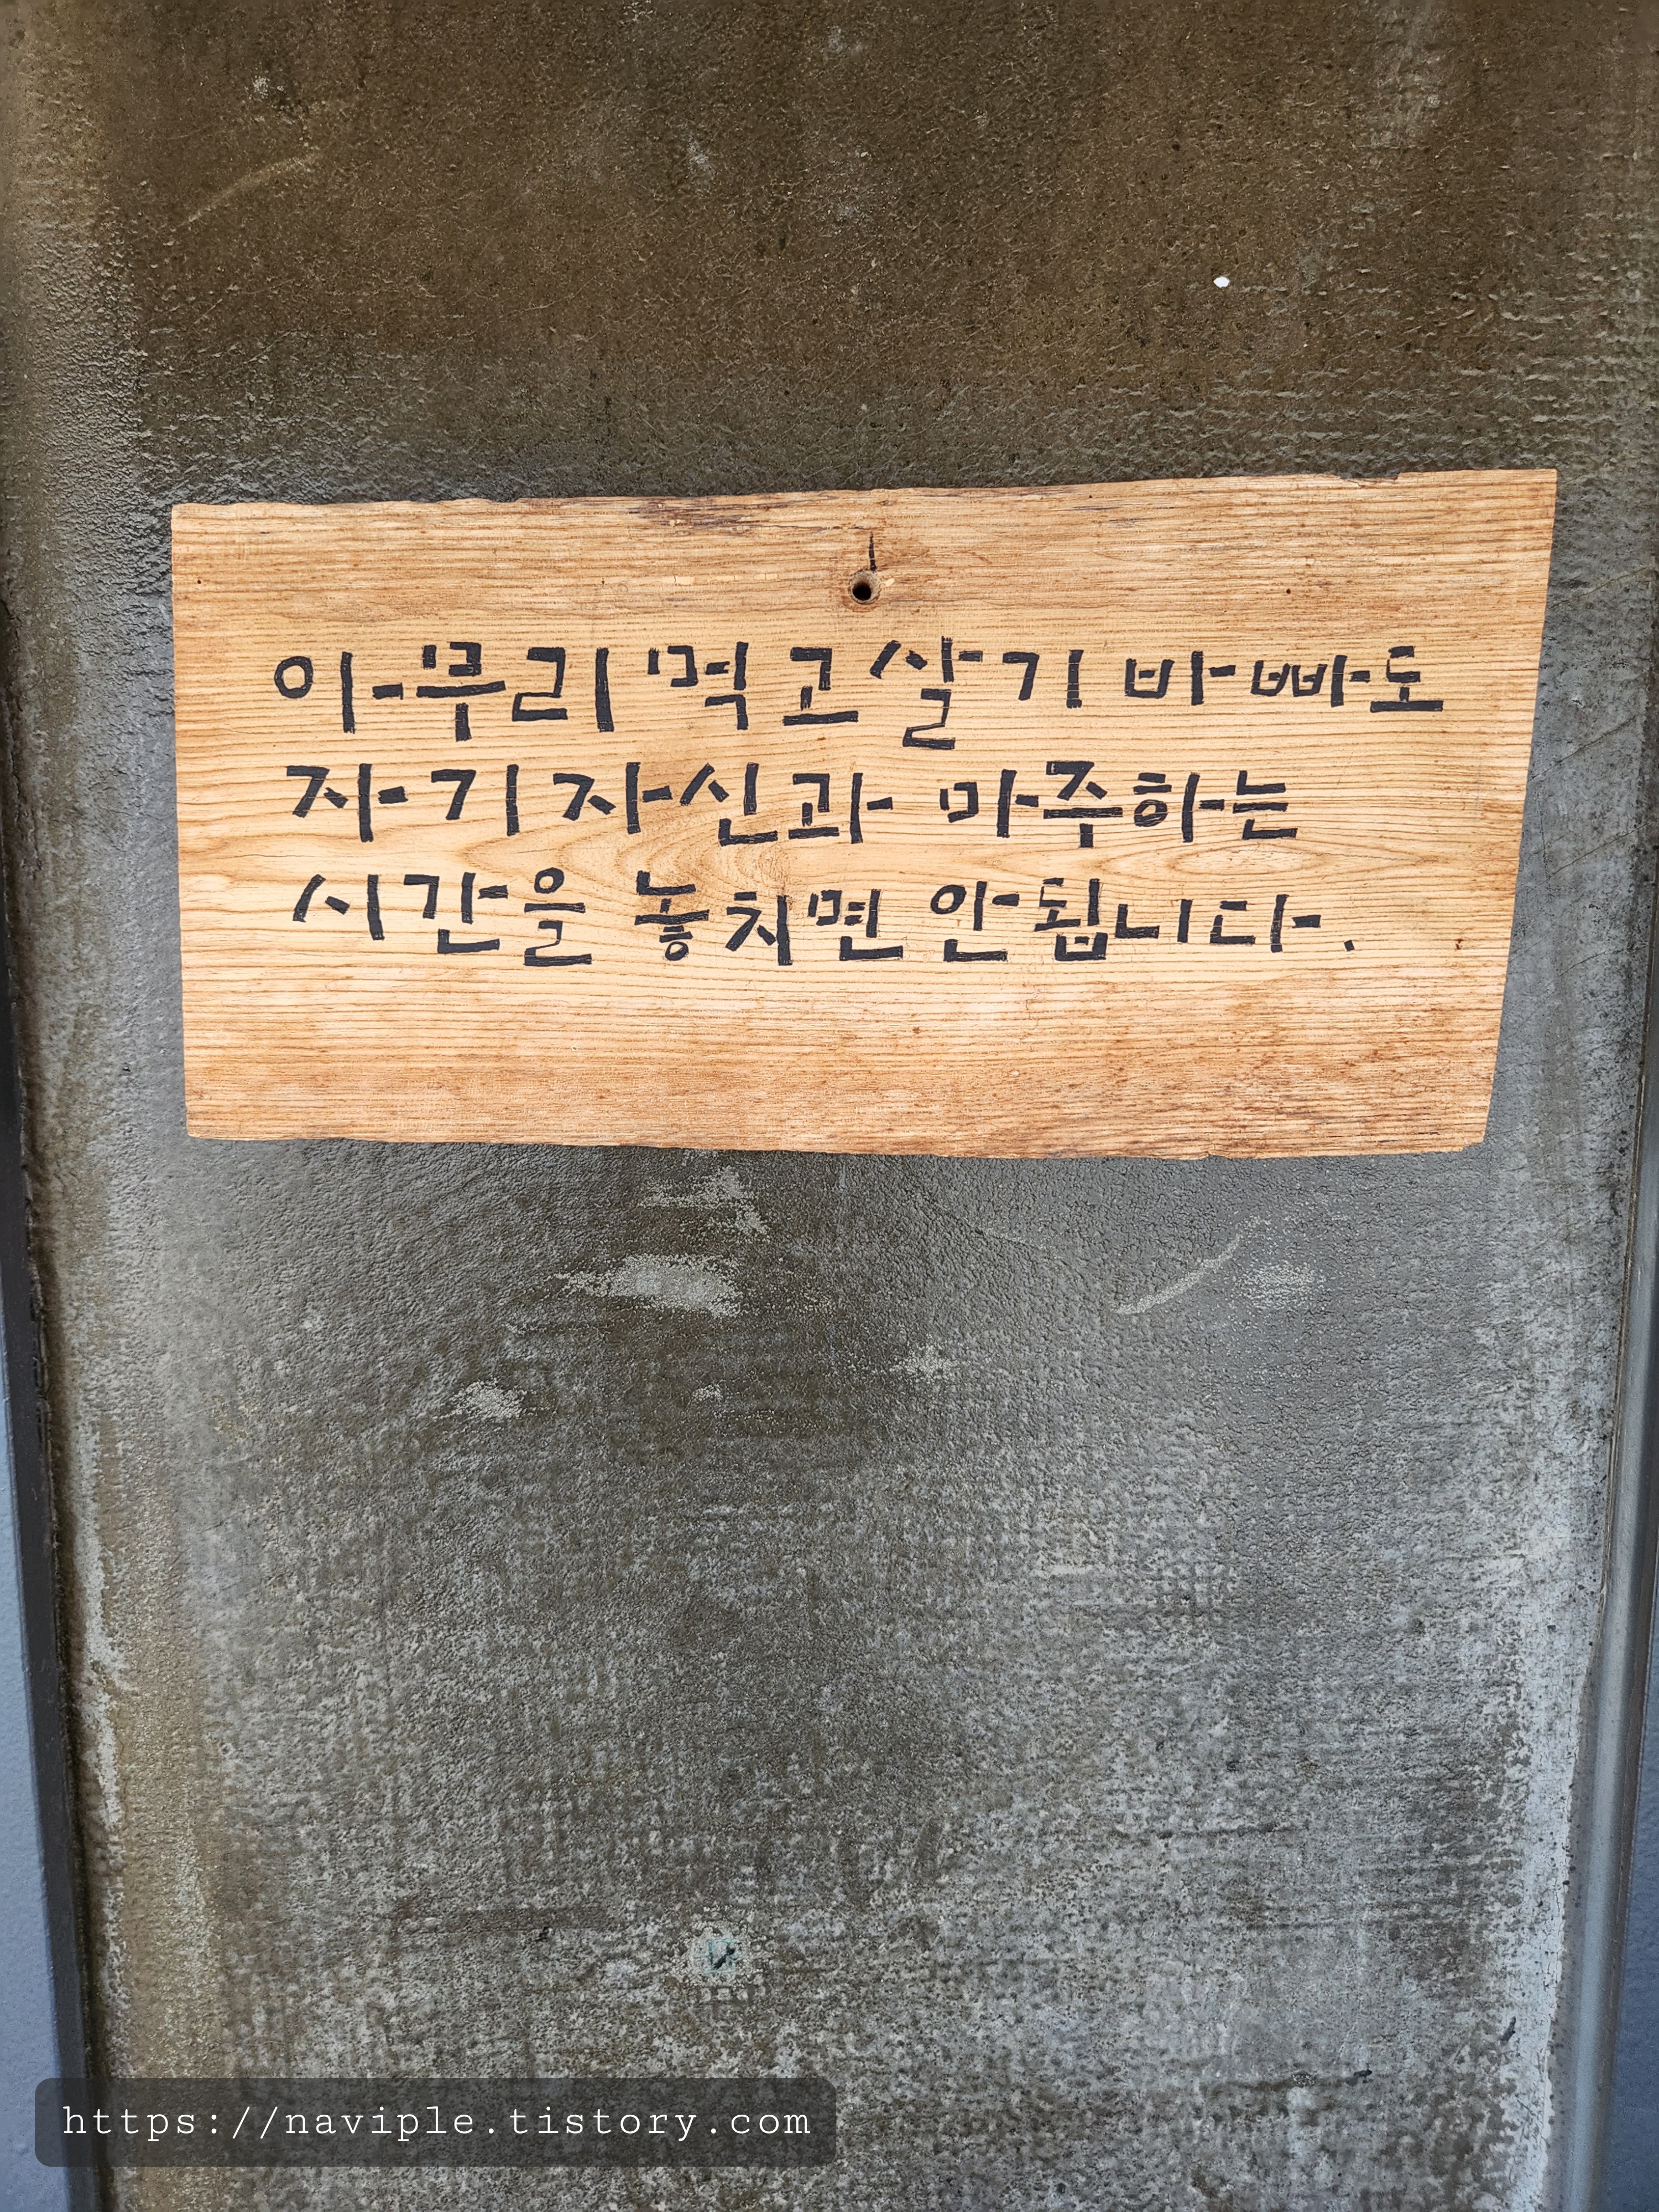 아무리 먹고살기 바빠도
자기자신과 마주하는
시간을 놓치면 안됩니다.
https://naviple.tistory.com